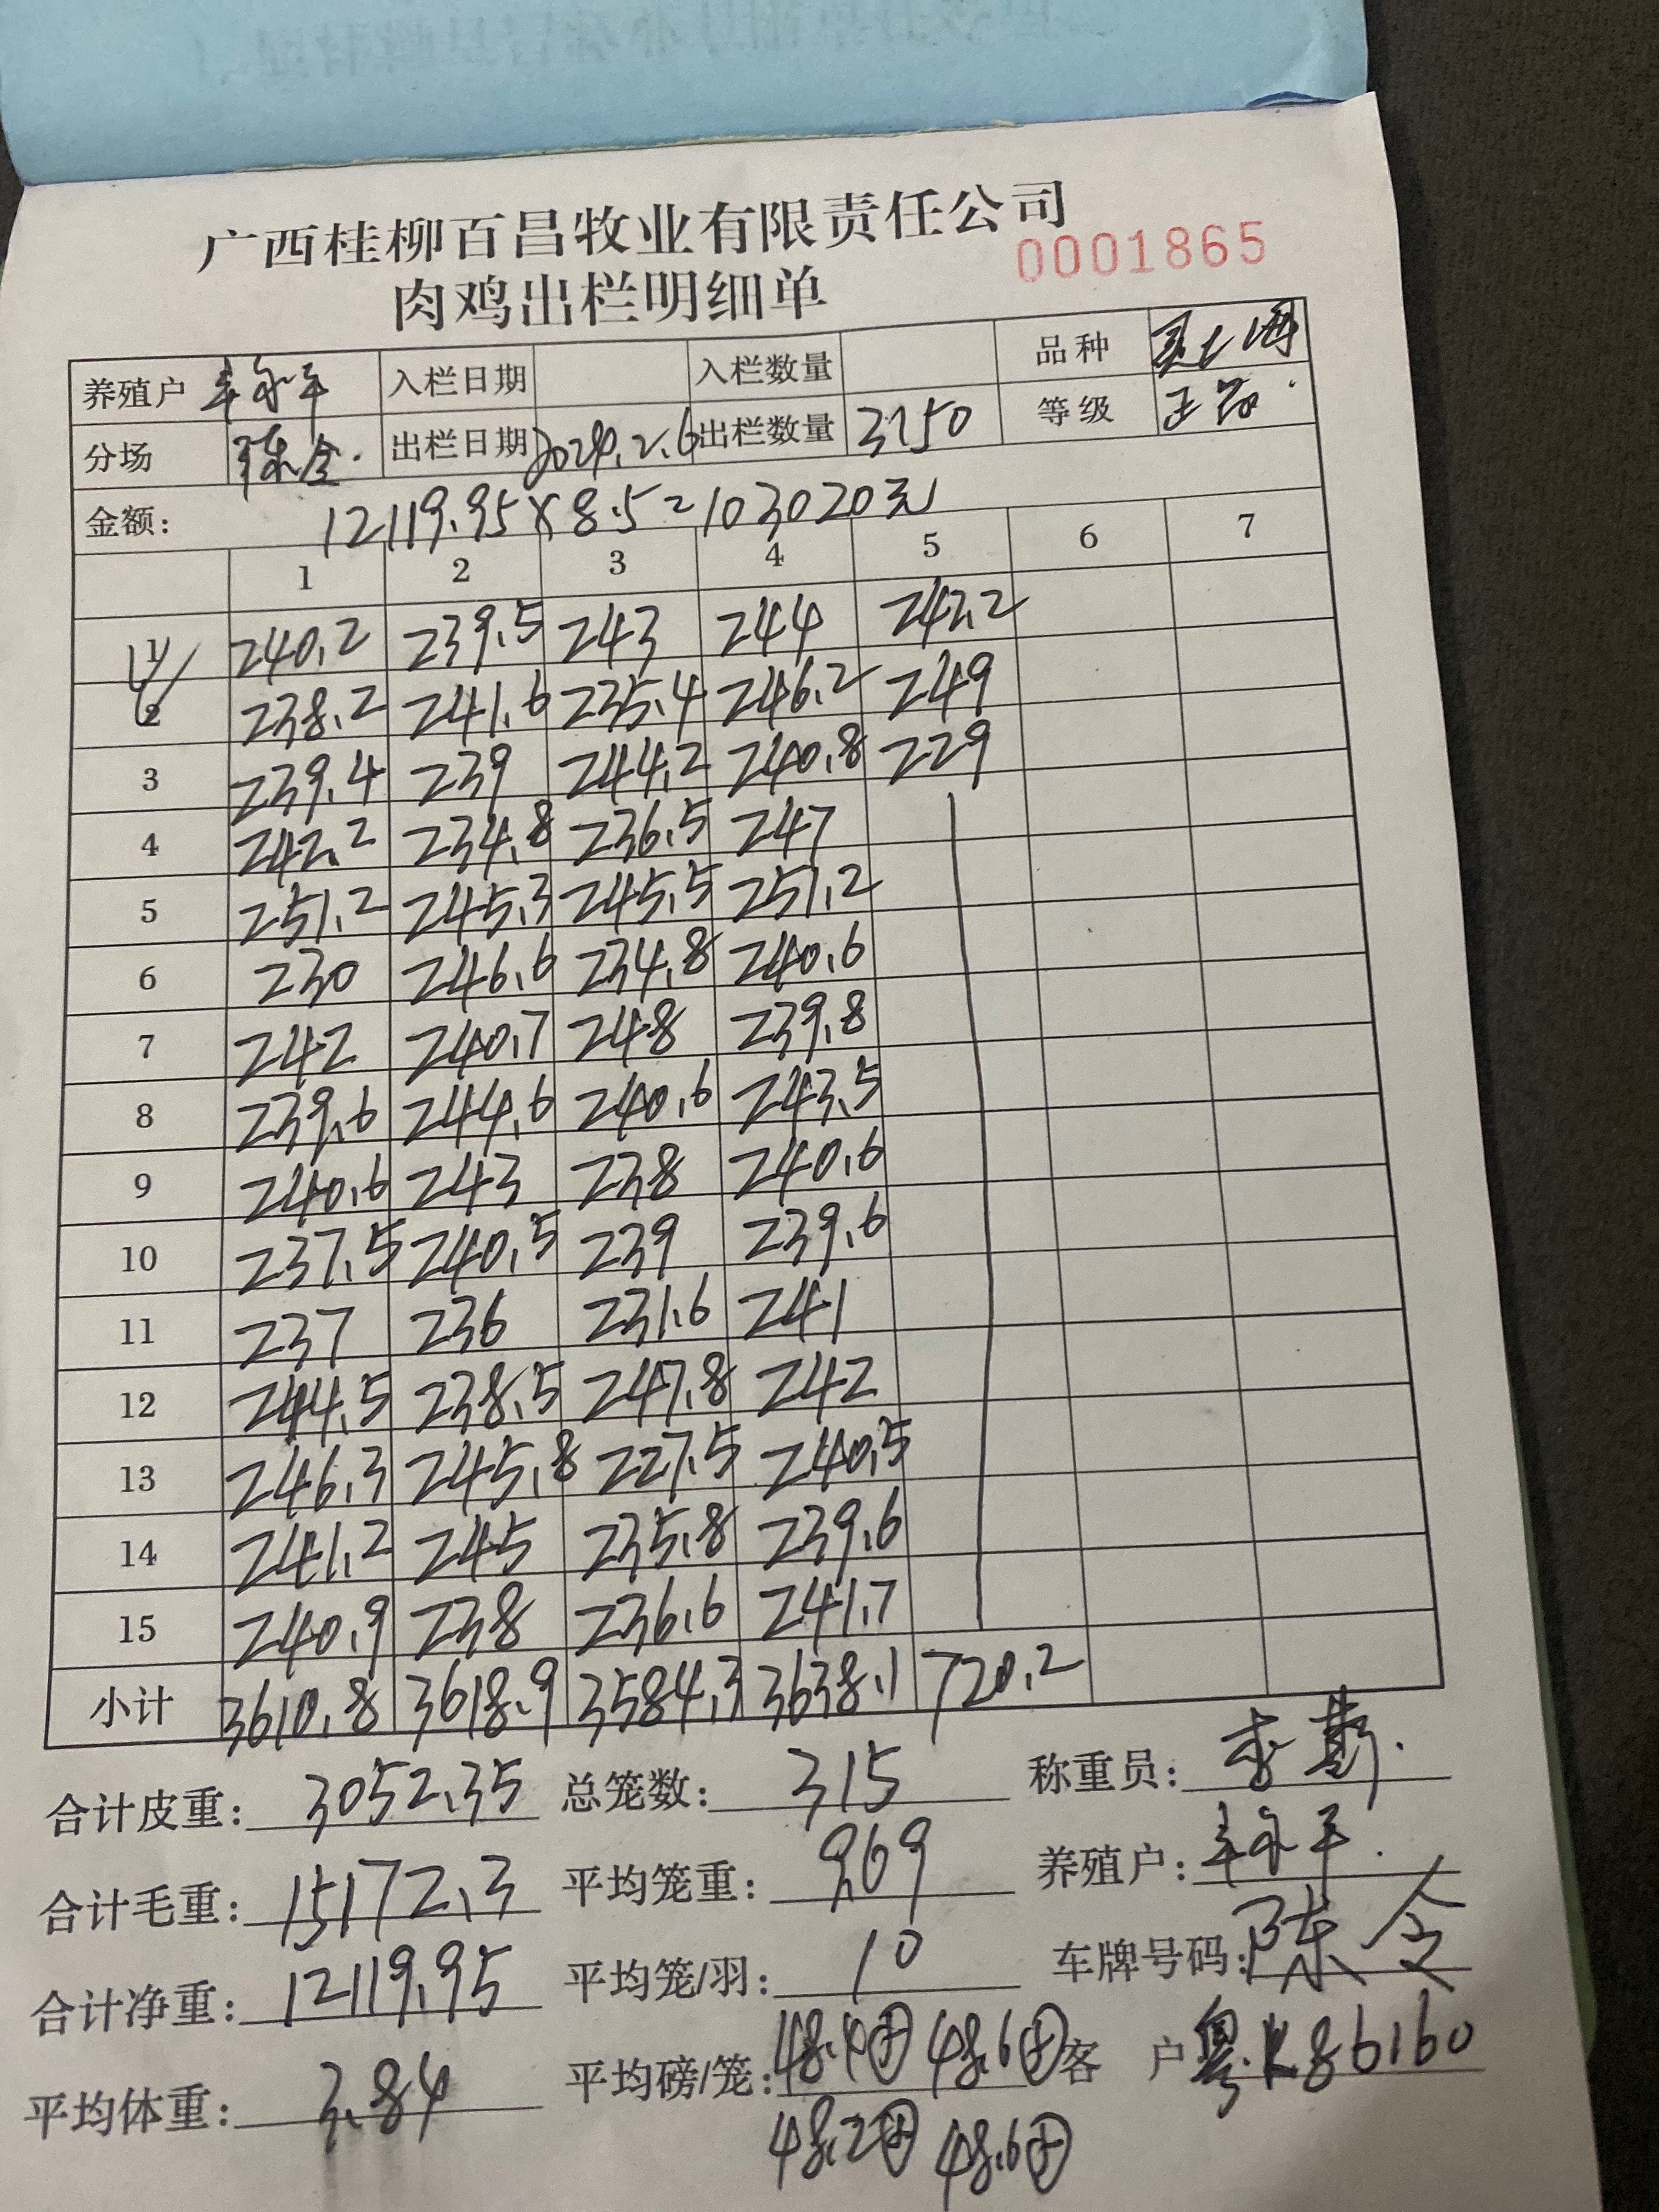 广西桂柳百昌牧业有限责任公司
0001865
肉鸡出栏明细单
养殖户 入栏日期 入栏数量 品种
分场 陈令. 出栏日期 2024.2.6 出栏数量 3150 等级 正品.
金额: 12119.95×8.5=103020元
1 2 3 4 5 6 7
1 240.2 239.5 243 244 242.2
2 238.2 241.6 235.4 246.2 249
3 239.4 239 244.2 240.8 229
4 242.2 234.8 236.5 247
5 251.2 245.3 245.5 251.2
6 230 246.6 234.8 240.6
7 242 240.7 248 239.8
8 239.6 244.6 240.6 243.5
9 240.6 243 238 240.6
10 237.5 240.5 239 239.6
11 237 236 231.6 241
12 244.5 238.5 247.8 242
13 246.3 245.8 227.5 240.5
14 241.2 245 235.8 239.6
15 240.9 238 236.6 241.7
小计 3610.8 3618.9 3584.3 3638.1 720.2
合计皮重: 3052.35 总笼数: 315 称重员:
合计毛重: 15172.3 平均笼重: 9.69 养殖户:
合计净重: 12119.95 平均笼/羽: 10 车牌号码: 陈令
平均体重: 3.84 平均磅/笼: 48.4 48.6 客户 粤K86160
48.2 48.6